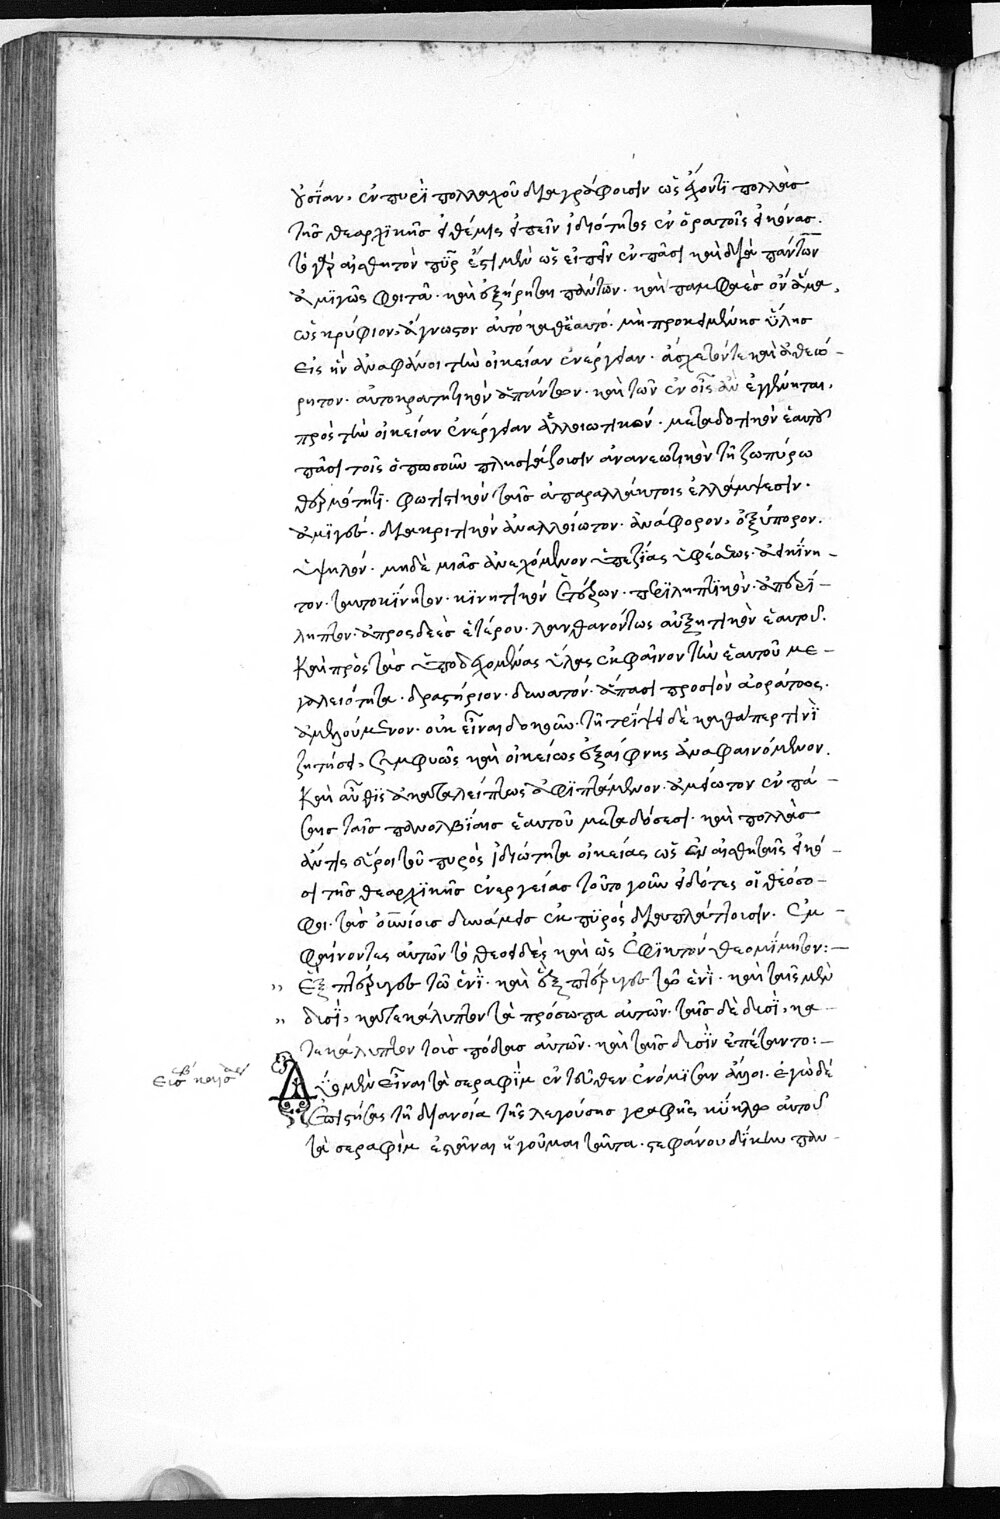 οὐσίαν, ἐν πυρὶ πολλαχοῦ διαγράφουσιν ὡς ἔχοντι πολλὰς
τῆς θεαρχικῆς εἰ θέμις εἰπεῖν ἰδιότητος ἐν ὁρατοῖς εἰκόνας.
τὸ γὰρ αἰσθητὸν πῦρ ἔστι μὲν ὡς εἰπεῖν ἐν πᾶσι καὶ διὰ πάντων
ἀμιγῶς φοιτᾷ. καὶ ἐξῄρηται πάντων. καὶ παμφαὲς ὂν ἅμα,
ὡς κρύφιον, ἄγνωστον αὐτὸ καθ' ἑαυτό. μὴ προκειμένης ὕλης
εἰς ἣν ἀναφαίνοι τὴν οἰκείαν ἐνέργειαν. ἄσχετόν τε καὶ ἀθεώ-
ρητον. αὐτοκρατητικὸν ἁπάντων. καὶ τῶν ἐν οἷς ἂν ἐγγένηται,
πρὸς τὴν οἰκείαν ἐνέργειαν ἀλλοιωτικόν. μεταδοτικὸν ἑαυτοῦ
πᾶσι τοῖς ὁπωσοῦν πλησιάζουσιν ἀνανεωτικὸν τῇ ζωπύρω
θερμότητι. φωτιστικὸν ταῖς ἀπαρακαλύπτοις ἐλλάμψεσιν.
ἀμιγὲς. διακριτικὸν ἀναλλοίωτον. ἀνάφορον, ὀξύπορον.
ὑψηλόν. μηδὲ μιᾶς ἀνεχόμενον ὑποπεζίας ὑφέσεως. ἀεικίνη-
τον. ταυτοκίνητον. κινητικὸν ἑτέρων. περιληπτικὸν. ἀπερί-
ληπτον. ἀπροσδεὲς ἑτέρου. λανθανόντως αὐξητικὸν ἑαυτοῦ.
καὶ πρὸς τὰς ὑποδεχομένας ὕλας ἐκφαῖνον τὴν ἑαυτοῦ με-
γαλειότητα. δραστήριον. δυνατόν. ἅπασι προσὸν ἀοράτως.
ἀμελούμενον. οὐκ εἶναι δοκοῦν. τῇ τρίψει δὲ καθάπερ τινὶ
ζητήσει, συμφυῶς καὶ οἰκείως ἐξαίφνης ἀναφαινόμενον.
καὶ αὖθις ἀκαταλείπτως ἀφιπτάμενον. ἀμείωτον ἐν πά-
σαις ταῖς πανολβίαις ἑαυτοῦ μεταδόσεσι. καὶ πολλὰς
ἄν τις εὕροι τοῦ πυρὸς ἰδιότητα οἰκείας ὡς ἐν αἰσθηταῖς εἰκό-
σι τῆς θεαρχικῆς ἐνεργείας τοῦτο γοῦν εἰδότες οἱ θεόσο-
φοι. τὰς οὐνίοις δυνάμεις ἐκ πυρὸς διαπλάττουσιν. ἐμ-
φαίνοντες αὐτῶν τὸ θεοειδὲς καὶ ὡς ἐφικτὸν θεομίμητον:-
ἓξ πτέρυγες τῷ ἑνὶ. καὶ ἓξ πτέρυγες τῷ ἑνὶ. καὶ ταῖς μὲν
δυσὶ, κατεκάλυπτον τὰ πρόσωπα αὐτῶν. ταῖς δὲ δυσὶ, κα-
τεκάλυπτον τοὺς πόδας αὐτῶν. καὶ ταῖς δυσὶν ἐπέταντο:-
Δύο μὲν εἶναι τὰ σεραφὶμ ἐντεῦθεν ἐνόμισαν ἄλλοι. ἐγὼ δὲ
ἐπιστήσας τῇ διανοίᾳ τῆς λεγούσης γραφῆς κύκλῳ αὐτοῦ
τὰ σεραφὶμ ἑστάναι ἡγοῦμαι ταῦτα. στεφάνου δίκην παν-